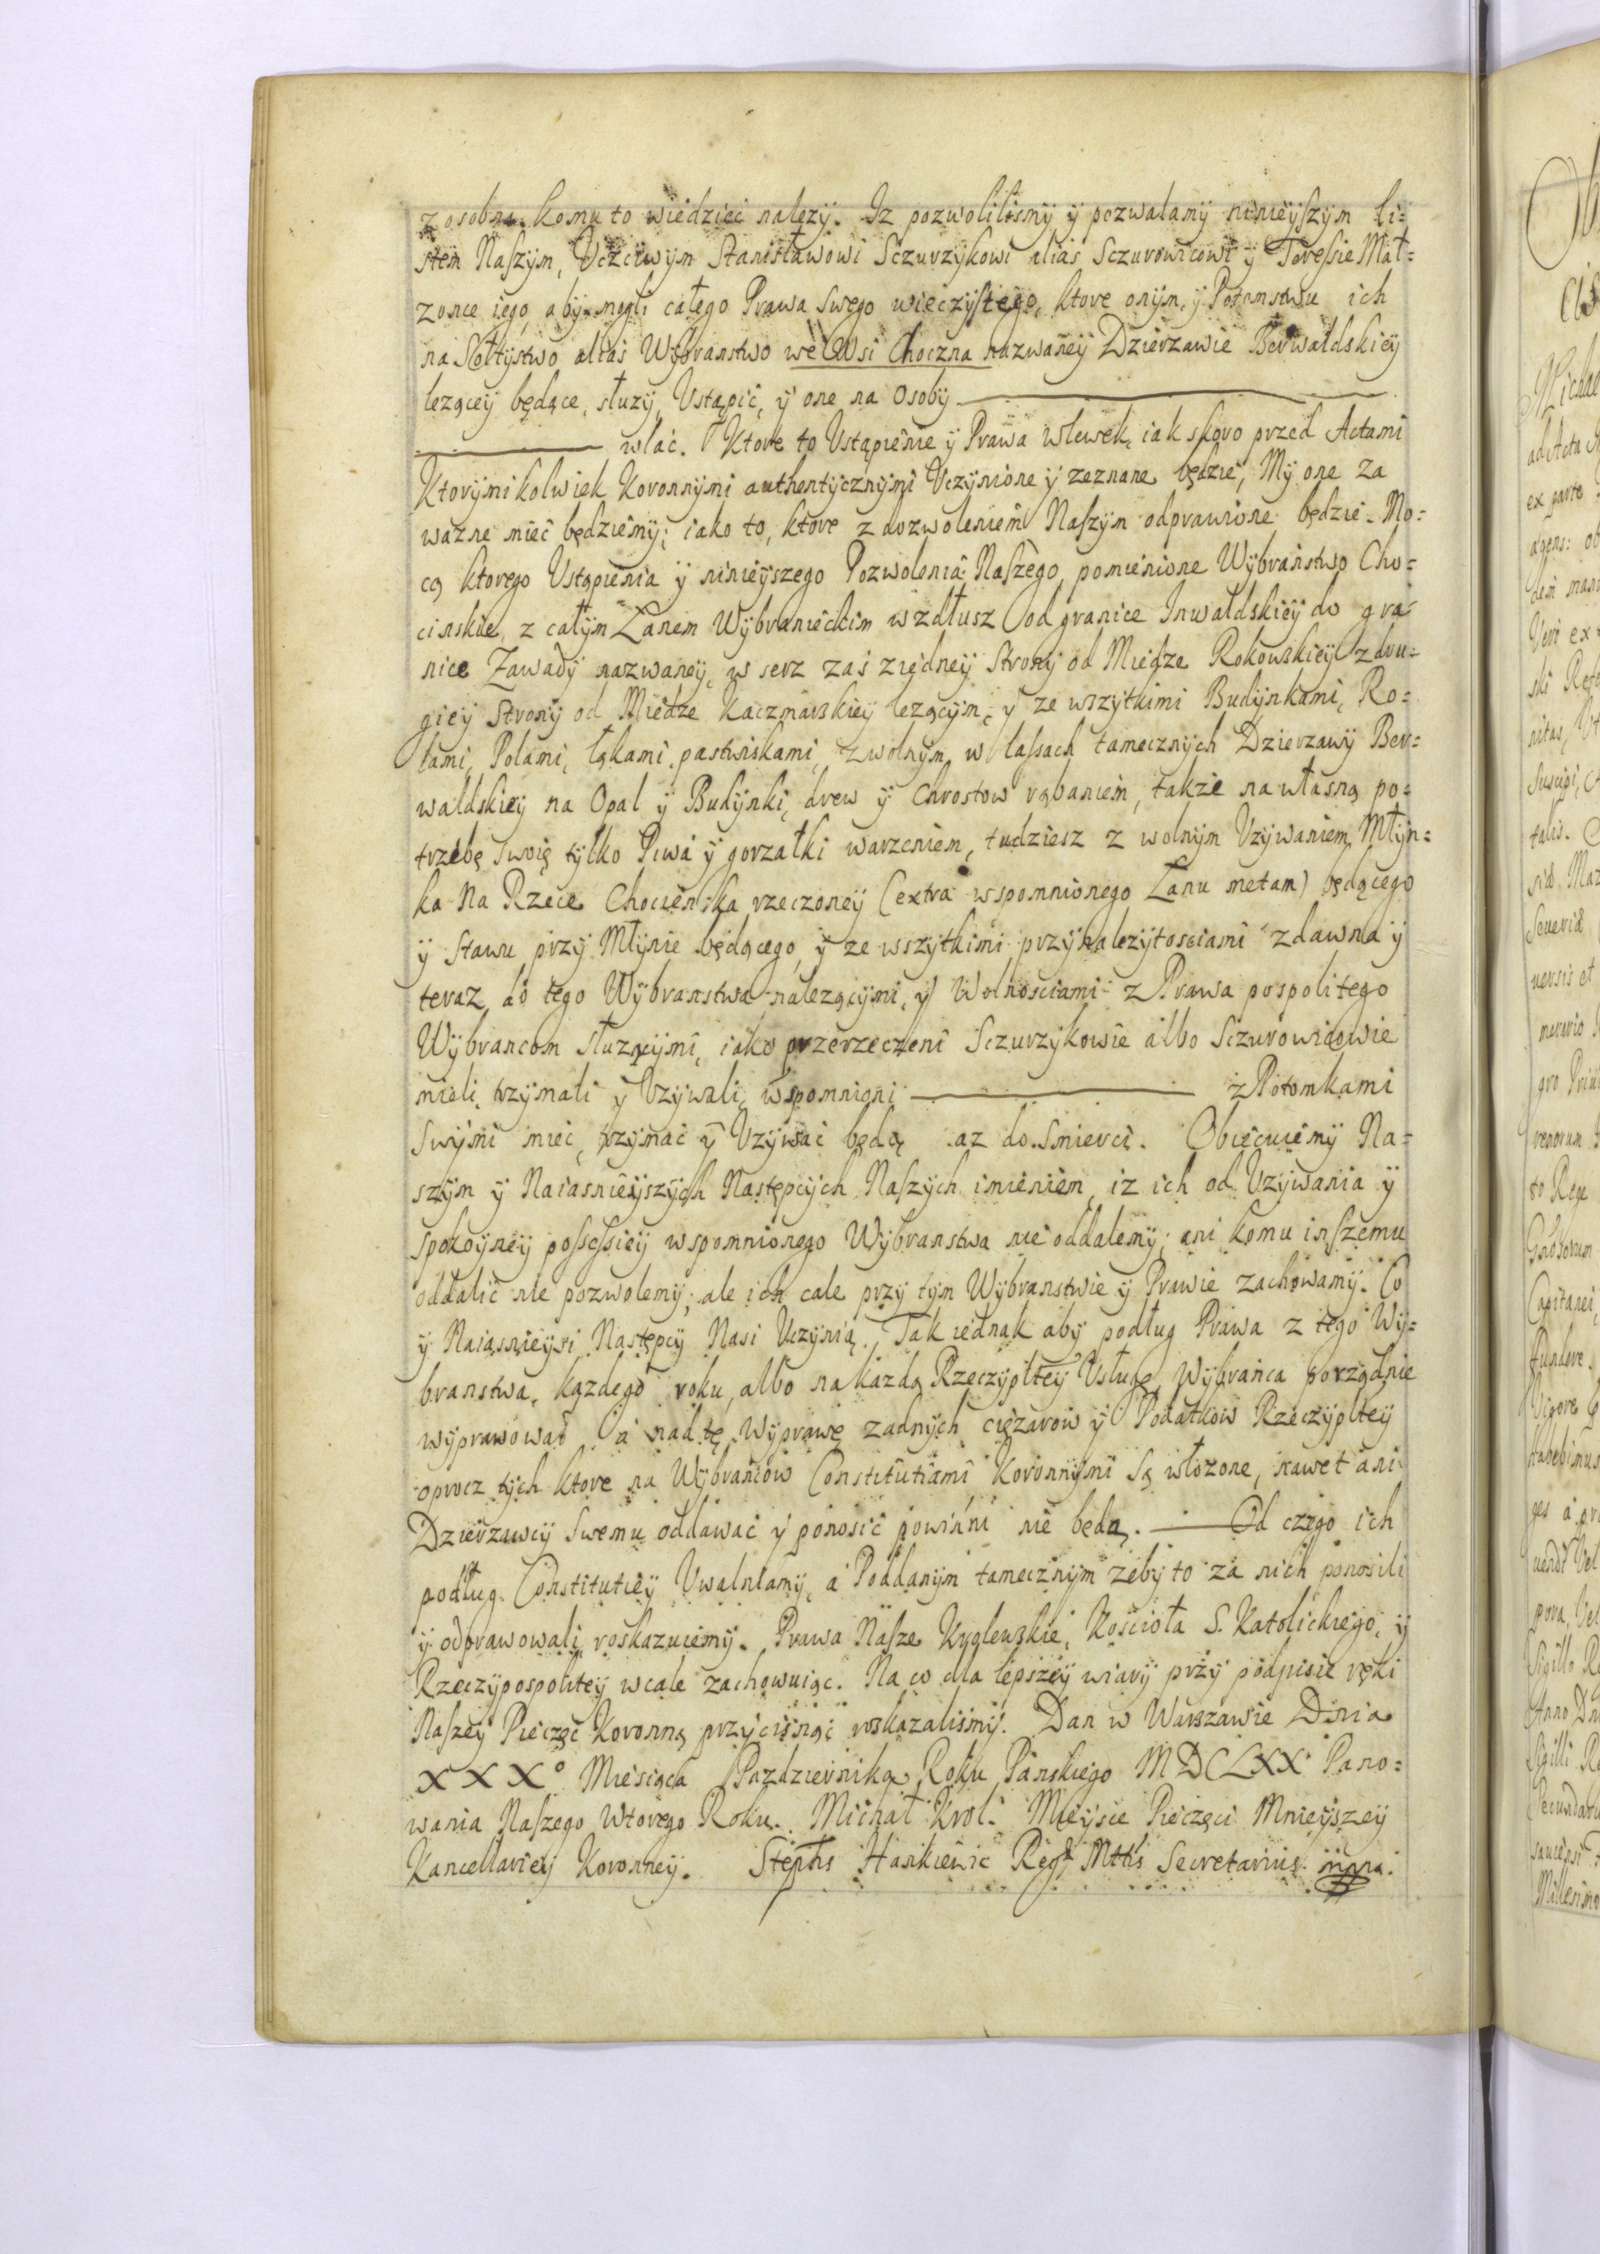 z osobna. komu to wiedzieć nalezy. Iz pozwolilismy y pozwalamy ninieyszym li=
stem Naszym, Uczciwym Stanisławowi Sczurzykowi alias Sczurowicowi y Teressie Mał=
zonce iego, aby mogli całego Prawa swego wieczystego, ktore onym, y Potomstwu ich
na Sołtystwo alias Wybranstwo we Wsi Choczna nazwaney Dzierzawie Berwałdskiey
lezącey będące, słuzy, Ustąpić, y one na Osoby
wlać. Ktore to Ustąpienie y Prawa wlewek, iak skoro przed Actami
Ktorymikolwiek Koronnymi authentycznymi Uczynione y zeznane będzie, My one za
wazne mieć będziemy; iako to, ktore z dozwoleniem Naszym odprawione będzie. Mo=
cą ktorego Ustąpienia y ninieyszego Pozwolenia Naszego, pomienione Wybranstwo Cho=
cinskie, z całym Łanem Wybranieckim wzdłusz od granice Inwałdskiey do gra=
nice Zawady nazwaney, w serz zaś ziedney Strony od Miedze Rokowskiey z dru=
giey Strony od Miedze Kaczmarskiey lezącym, y ze wszytkimi Budynkami, Ro=
lami, Polami, łąkami, pastwiskami, z wolnym w lassach tamecznych Dzierzawy Ber=
waldskiey na Opał y Budynki, drew y Chrostow rąbaniem, także na własną po=
trzebę swoię tylko Piwa y gorzałki warzeniem, tudziesz z wolnym Uzywaniem Młyn=
ka Na Rzece Chocienska rzeczoney (extra wspomnionego Łanu metam) będącego
y Stawu przy Młynie będącego, y ze wszytkimi przynalezytosciami zdawna y
teraz do tego Wybranstwa nalezącymi, y Wolnosciami z Prawa pospolitego
Wybrancom słuzącymi, iako przerzeczeni Sczurzykowie albo Sczurowicowie
mieli, trzymali y Uzywali, wspomnioni z Potomkami
Swymi mieć, trzymać y Uzywać będą az do Smierci. Obiecuiemy Na=
szym y Naiasnieyszych Następcych Naszych imieniem, iz ich od Uzywania y
spokoyney possessiey wspomnionego Wybranstwa nie oddalemy; ani komu inszemu
oddalić nie pozwolemy; ale ich cale przy tym Wybranstwie y Prawie zachowamy. Co
y Naiasnieysi Następcy Nasi Uczynią. Tak iednak aby podług Prawa z tego Wy=
branstwa, kazdego roku, albo na kazdą Rzeczyplitey Usługę, Wybranca porządnie
wyprawował a nad tę Wyprawę zadnych ciężarow y Podatkow Rzeczyplitey
oprocz tych ktore na Wybrancow Constitutiami Koronnymi są włozone, nawet ani
Dzierzawcy Swemu oddawać y ponosić powinni nie będą. Od czego ich
podług Constitutiey Uwalniamy, a Poddanym tamecznym zeby to za nich ponosili
y odprawowali, roskazuiemy. Prawa Nasze Krolewskie, Kościoła S. Katolickiego, y
Rzeczypospolitey wcale zachowuiąc. Na co dla lepszey wiary przy podpisie ręki
Naszey Pieczęć Koronną przycisnąć roskazalismy. Dan w Warszawie Dnia
XXX° Miesiąca Pazdziernika Roku Panskiego MDCLXX Pano=
wania Naszego Wtorego Roku. Michał Krol. Mieysce Pieczęci Mnieyszey
Kancellariey Koronney. Stephs Hankiewic Rege Mttis Secretarius mpp.